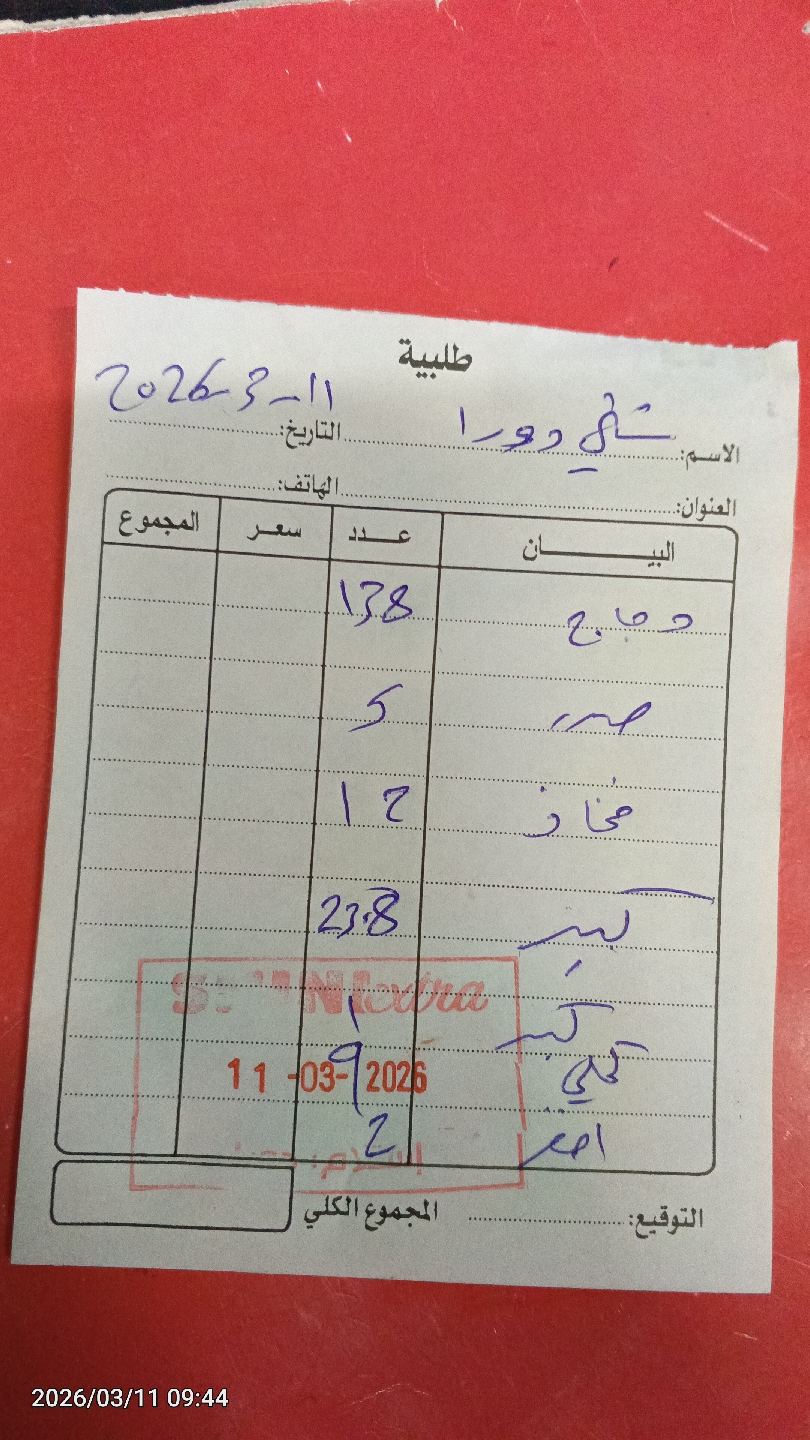 طلبية
الاسم: شلي دورا التاريخ: 11-3-2026
العنوان: الهاتف:
البيـــان عــدد سعـر المجموع
دجاج 138
صدر 5
فخاذ 12
كبير 23.8
كبير 1
كلي 9
اصفر 2
SHINI extra
11-03-2026
التوقيع: المجموع الكلي
2026/03/11 09:44